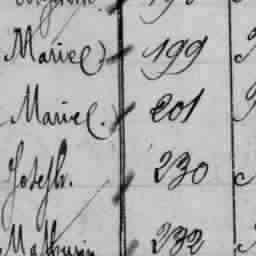 Marie 199
Marie. 201
Joseph. 230
Mathurin 232